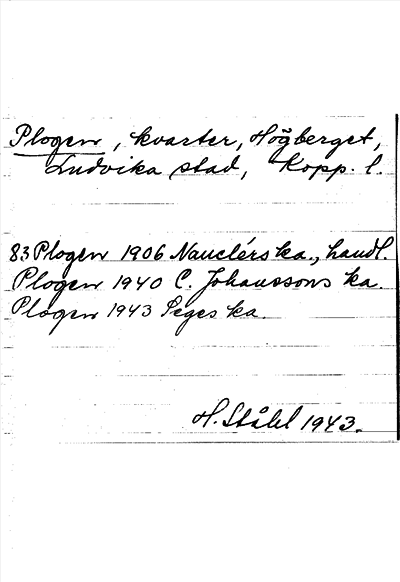 Plogen, kvarter, Högberget,
Ludvika stad, Kopp. l.
83 Plogen 1906 Nauclérs ka., handl.
Plogen 1940 C. Johanssons ka.
Plogen 1943 Seges ka.
H. Ståhl 1943.